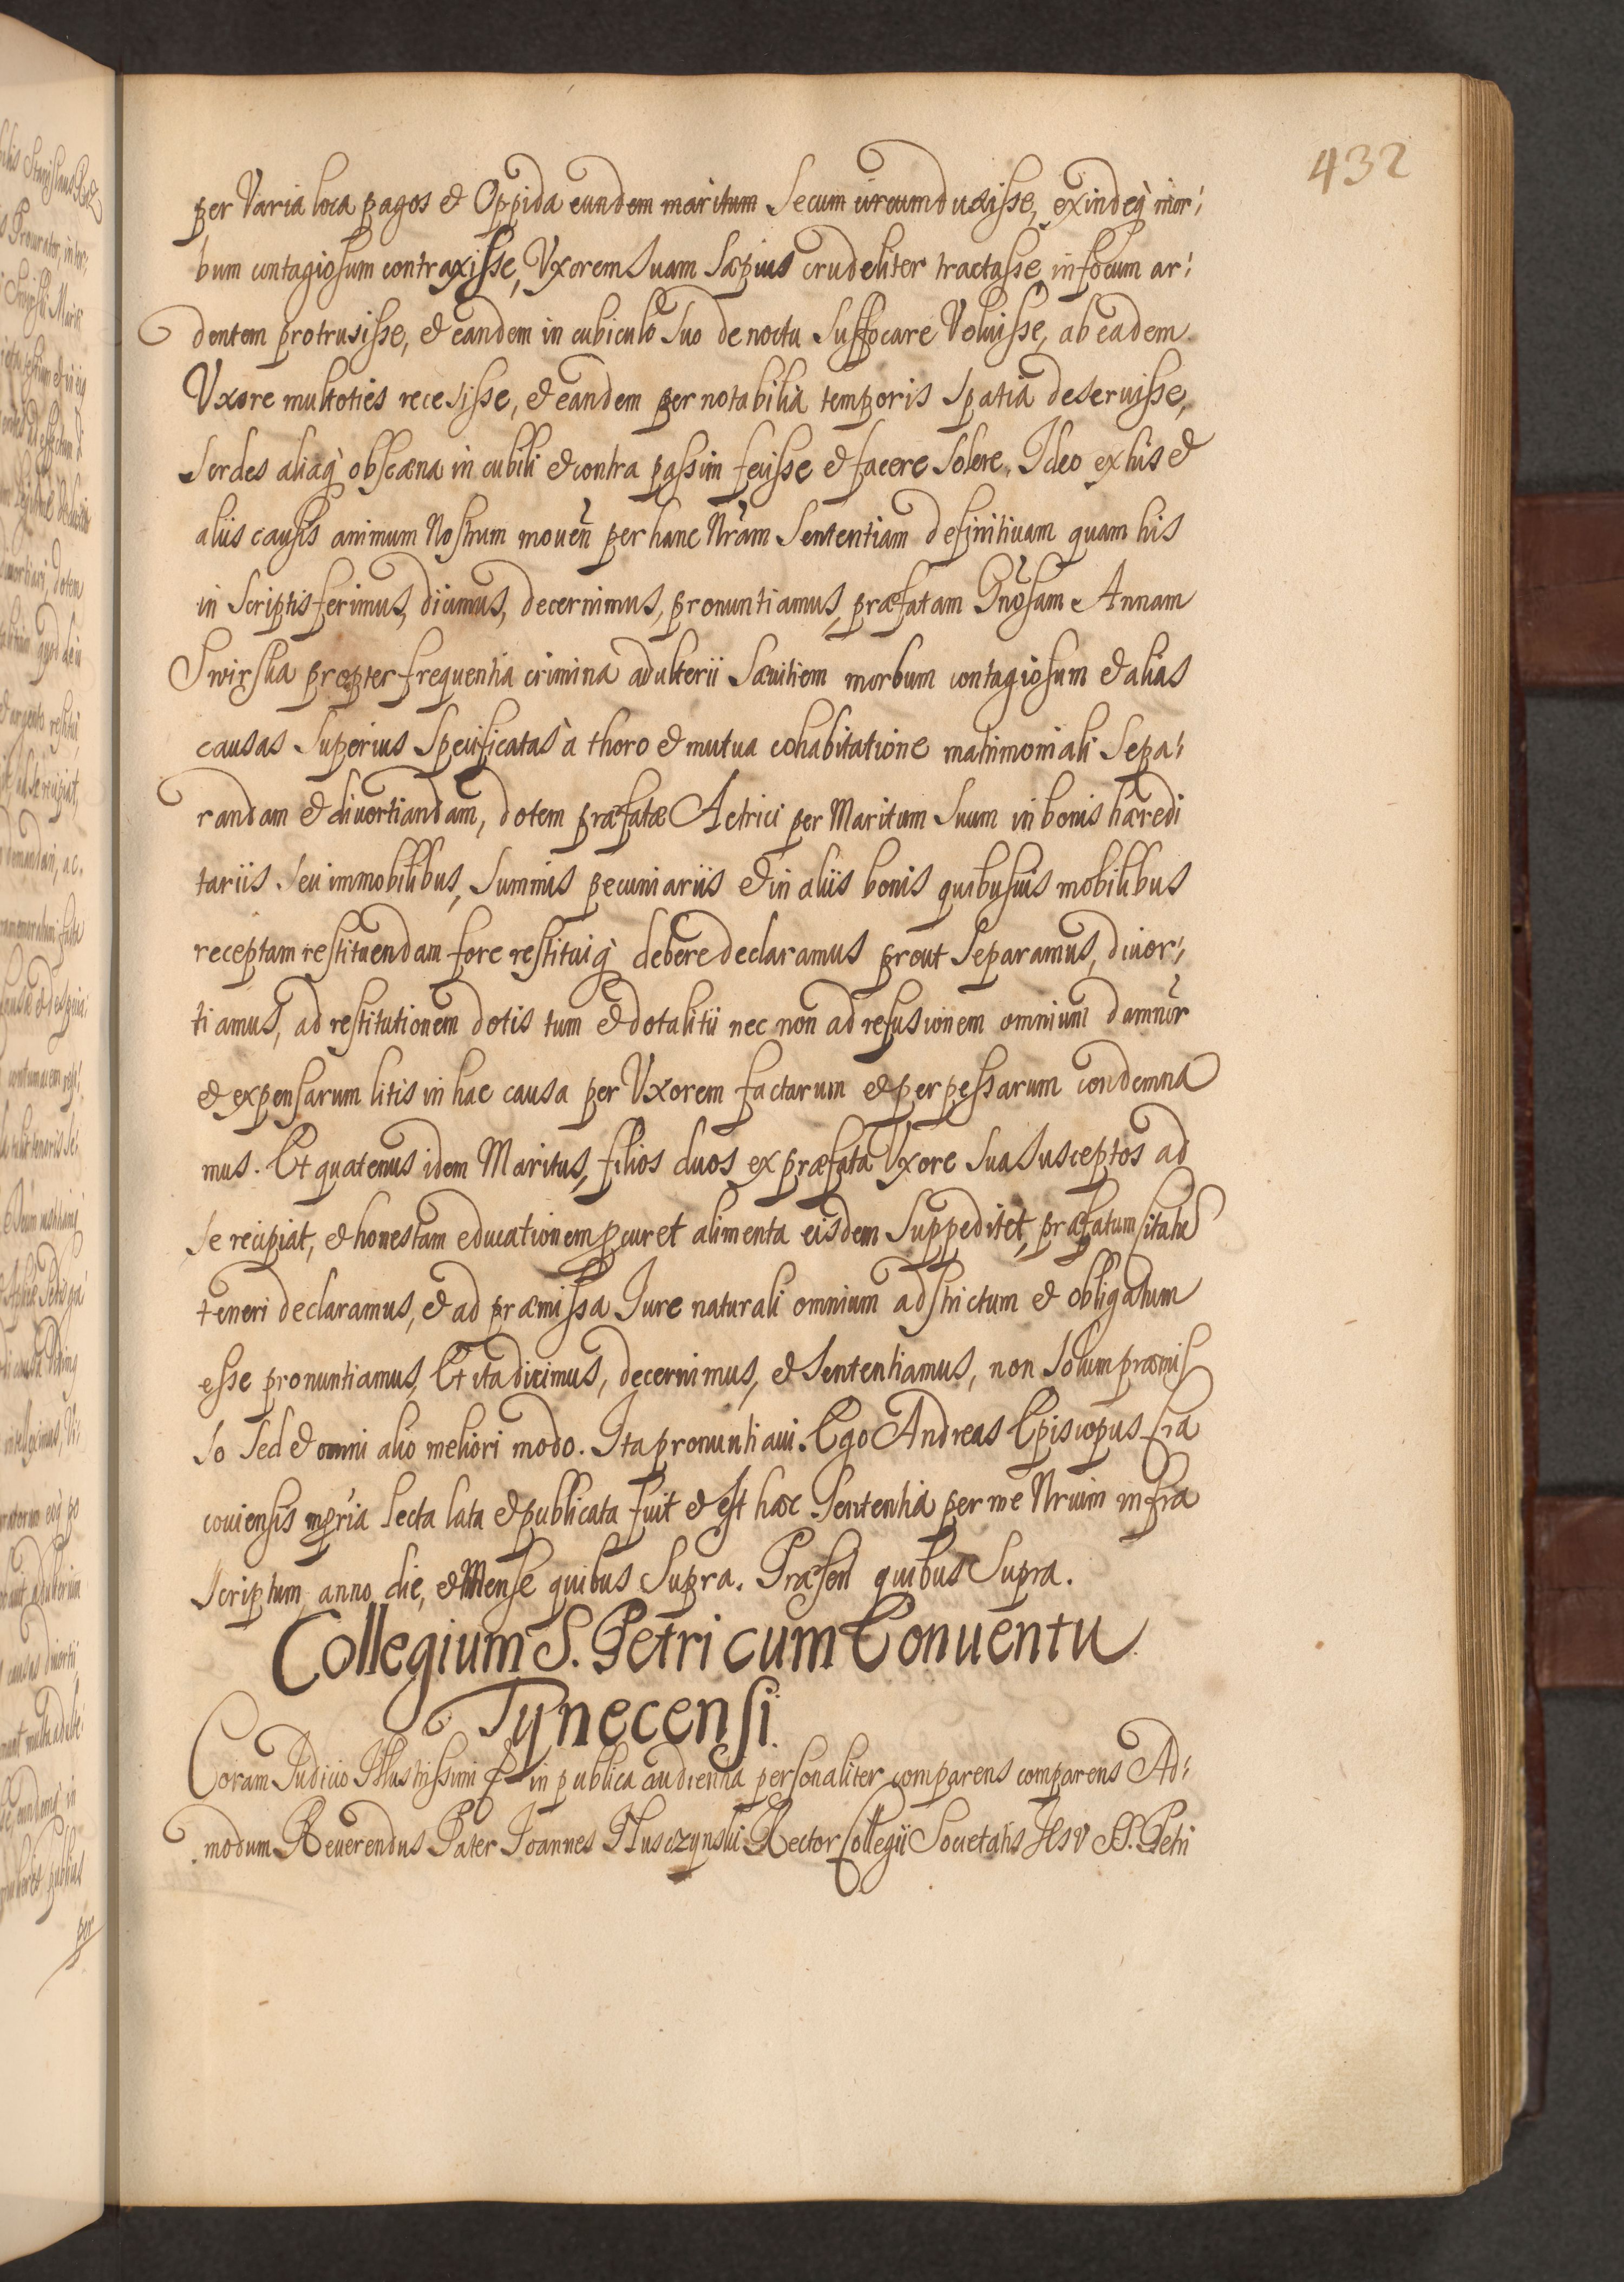 432
per Varia loca pagos et Oppida eundem maritum Secum circumduxisse, exindeq̀ mor¦
bum contagiosum contraxisse, Vxorem Suam Sæpius crudeliter tractasse, in focum ar¦
dentem protrusisse, et eandem in cubiculo Suo de noctu Suffocare Voluisse, ab eadem
Vxore multoties recesisse, et eandem per notabilia temporis Spatia deseruisse,
Sordes aliaq̀ obscæna in cubili et contra passim fecisse et facere Solere. Ideo ex his et
aliis causis animum Nostrum mouen̄ per hanc Nrām Sententiam definitiuam quam his
in Scriptis ferimus, dicimus, decernimus, pronuntiamus, præfatam Gnosam Annam
Swirska propter frequentia crimina adulterii Sæuitiem morbum contagiosum et alias
causas Superius Specificatas à thoro et mutua cohabitatione matrimoniali Sepa¦
randam et diuortiandam, dotem præfatæ Actrici per Maritum Suum in bonis hæredi
tariis Seu immobilibus, Summis pecuniariis et in aliis bonis quibusuis mobilibus
receptam restituendam fore restituiq̀ debere declaramus prout Separamus, diuor¦
tiamus, ad restitutionem dotis tum et dotalitii nec non ad refusionem omnium damnor̄
et expensarum litis in hac causa per Vxorem factarum et perpessarum condemna
mus. Et quatenus idem Maritus, filios duos ex præfata Vxore Sua Susceptos ad
Se recipiat, et honestam educationem ꝓcuret alimenta eisdem Suppeditet, præfatum Citatū
teneri declaramus, et ad præmissa Iure naturali omnium adstrictum et obligatum
esse pronuntiamus, Et ita dicimus, decernimus, et Sententiamus, non Solum præmis
So Sed et omni alio meliori modo. Ita pronuntiaui. Ego Andreas Episcopus Cra
couiensis mp̄ria Lecta lata et publicata fuit et est hæc Sententia per me Nrium infra
Scriptum, anno, die, et Mense quibus Supra. Præsen̄ quibus Supra.
Collegium S. Petri cum Conuentu
Tynecensi.
Coram Iudicio Illustrissimi &c in publica audientia personaliter comparens comparens Ad¦
modum Reuerendus Pater Ioannes Husczynski Rector Collegii Societatis IesV SS. Petri
per